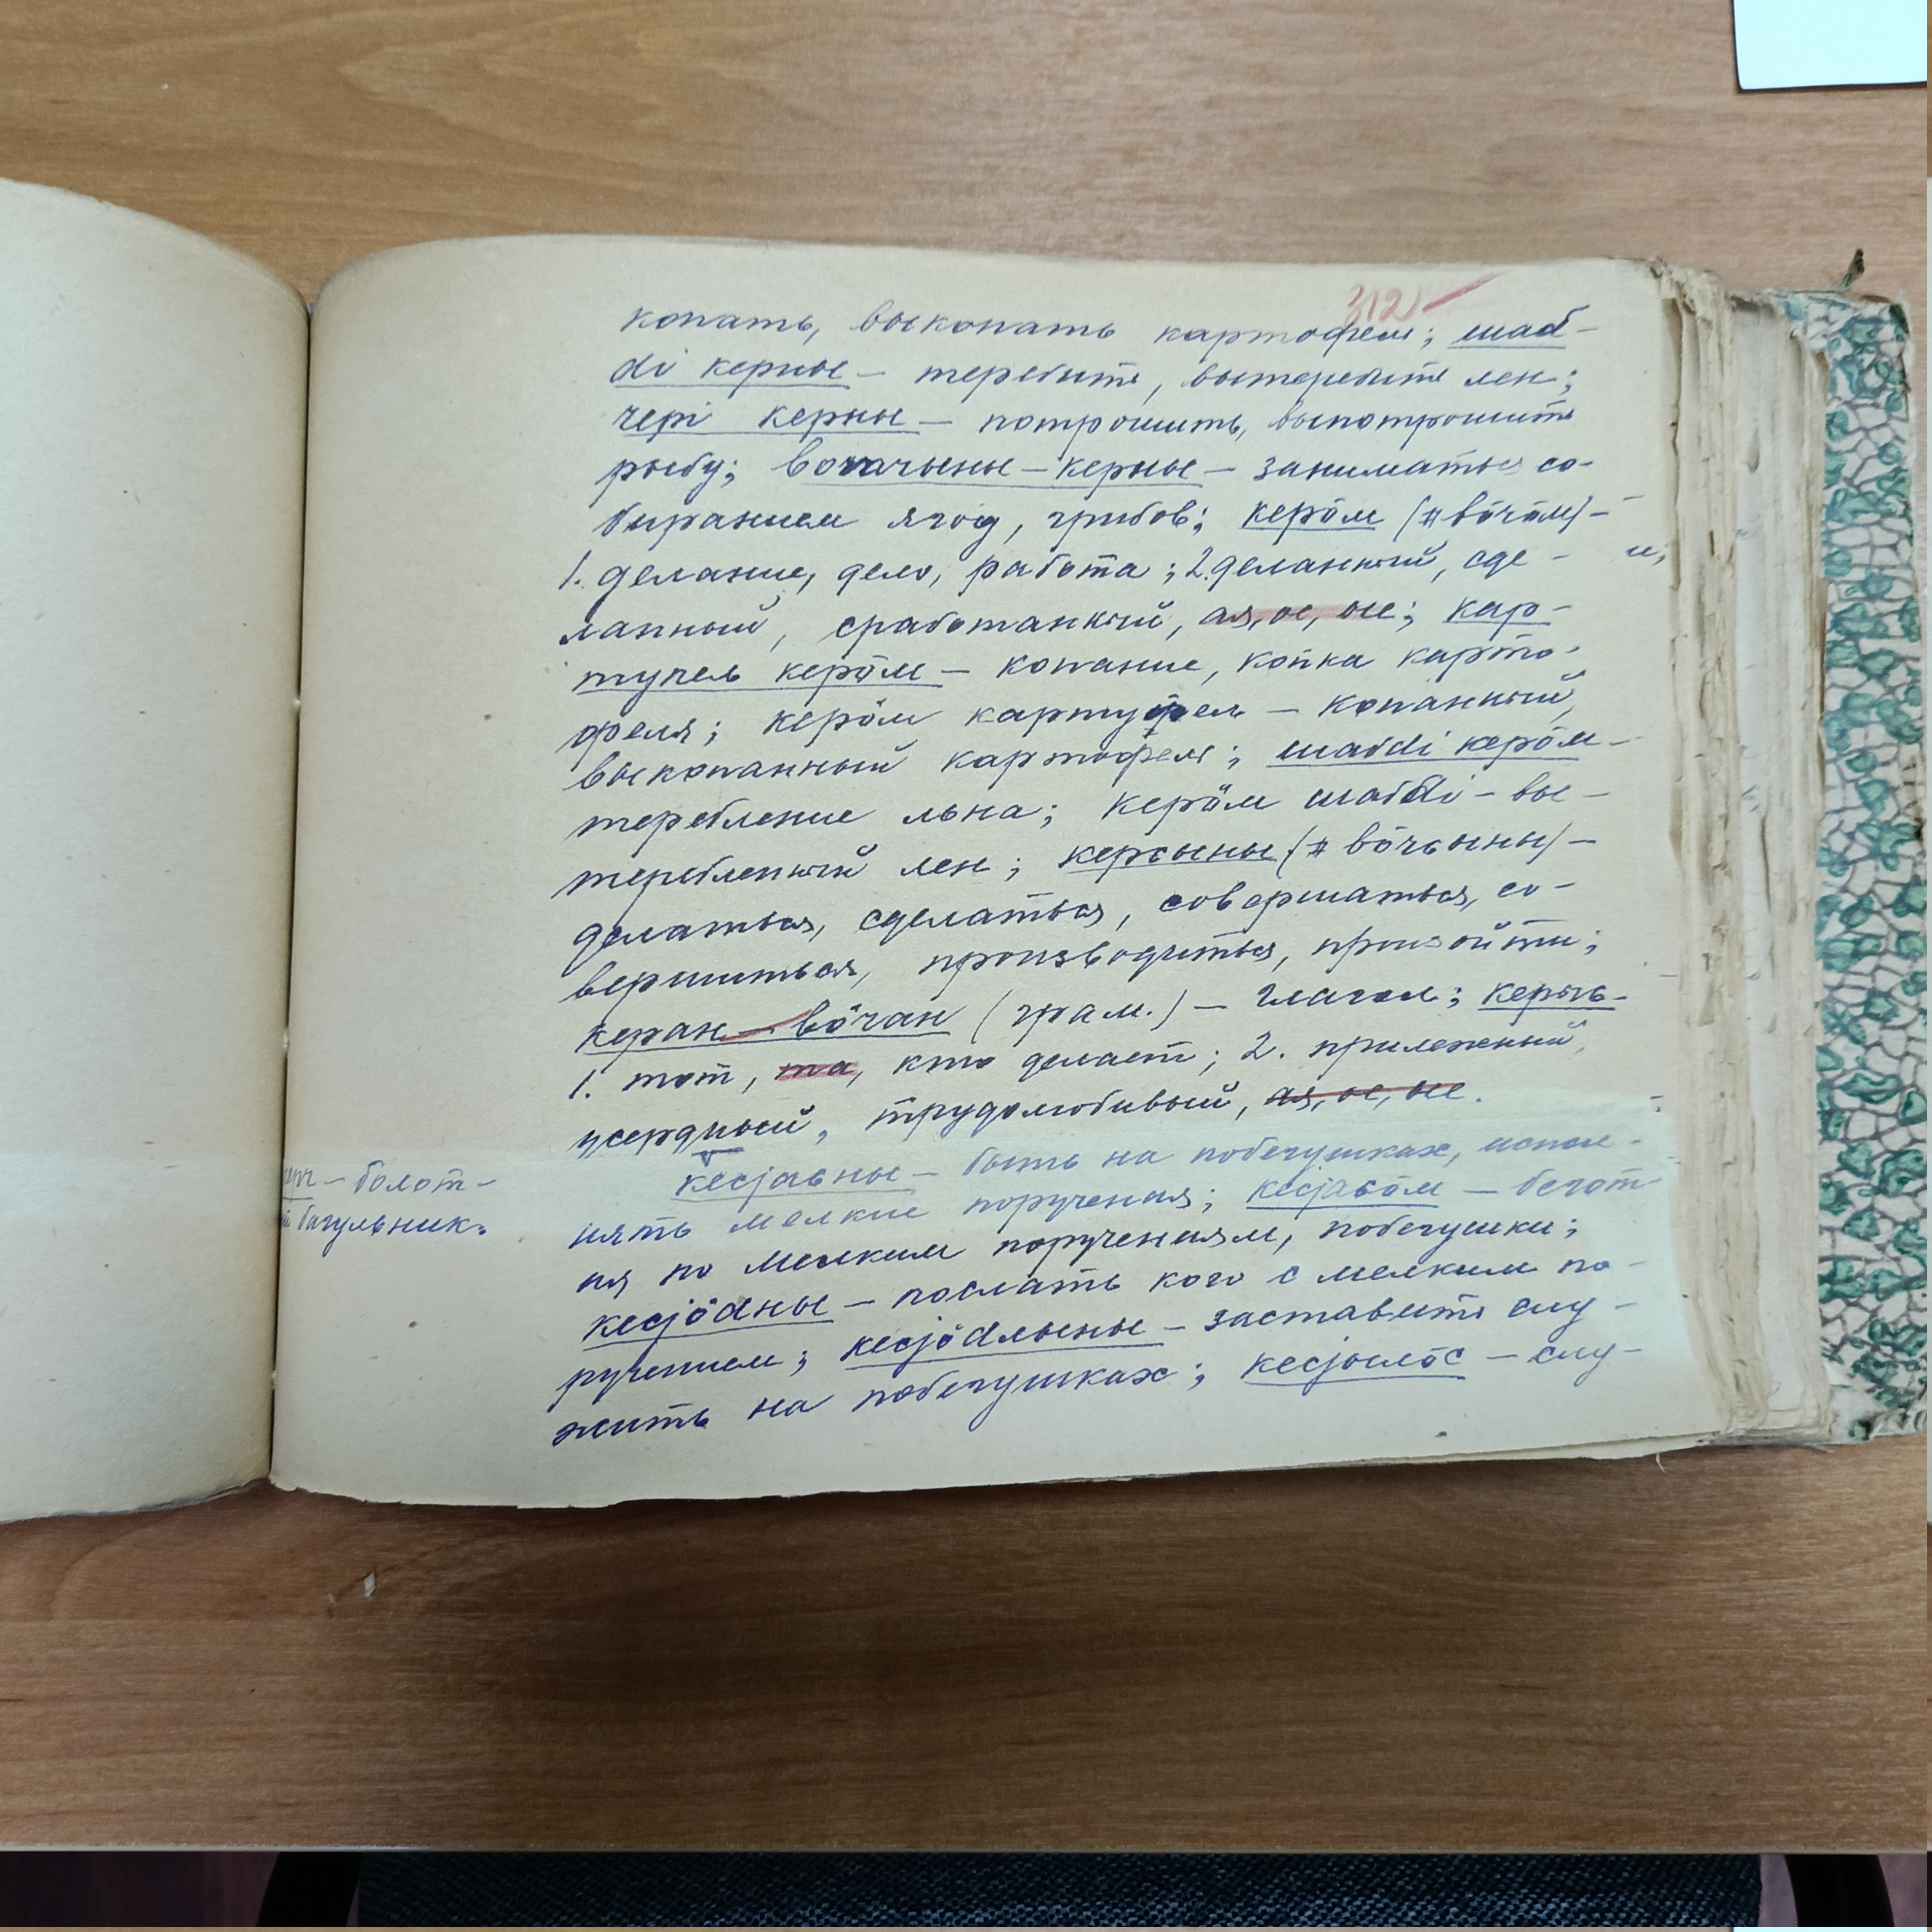 312
копать, выкопать картофель; шаб-
di керны – теребить, вытеребить лен;
чері керны – потрошить, выпотрошить
рыбу; вотчыны – керны – заниматься со-
биранием ягод, грибов; керӧм (# вӧчӧм) –
1. делание, дело, работа; 2. деланный, сде-
ланный, сработанный, ая, ое, ые; кар-
тупель керӧм – копание, копка карто-
феля; керӧм картуфель – копанный,
выкопанный картофель; шабdi керӧм –
теребление льна; керӧм шабdi – вы-
теребленный лен; керсыны (# вӧчсыны) –
делаться, сделаться, совершаться, со-
вершиться, производиться, произойти;
керан – вӧчан (грам.) – глагол; керысь –
1. тот, та, кто делает; 2. прилежный,
усердный, трудолюбивый, ая, ое, ые.
кесјавны – быть на побегушках, испол-
нять мелкие поручения; кесјавӧм – беготт-
ня по мелким поручениям, побегушки;
кесјӧdны – послать кого с мелким по-
ручением; кесјӧdлыны – заставить слу-
жить на побегушках; кесјылӧс – слу-
– болот-
багульник.